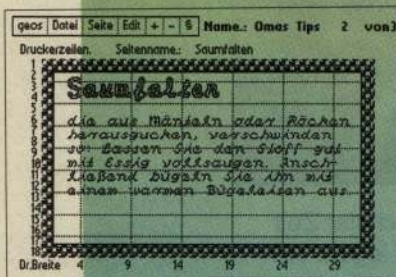 geos Datei Seite Edit + - § Name.: Omas Tips 2 von3
Druckerzeilen. Seitenname.: Saumfalten
1
2
3
4
5
6
7
8
9
10
11
12
13
14
15
16
17
18
Saumfalten
die aus Mänteln oder Röcken
herausgucken, verschwinden
so: Lassen Sie den Stoff gut
mit Essig vollsaugen. Ansch-
ließend bügeln Sie ihn mit
einem warmen Bügeleisen aus
Dr.Breite 4 9 14 19 24 29